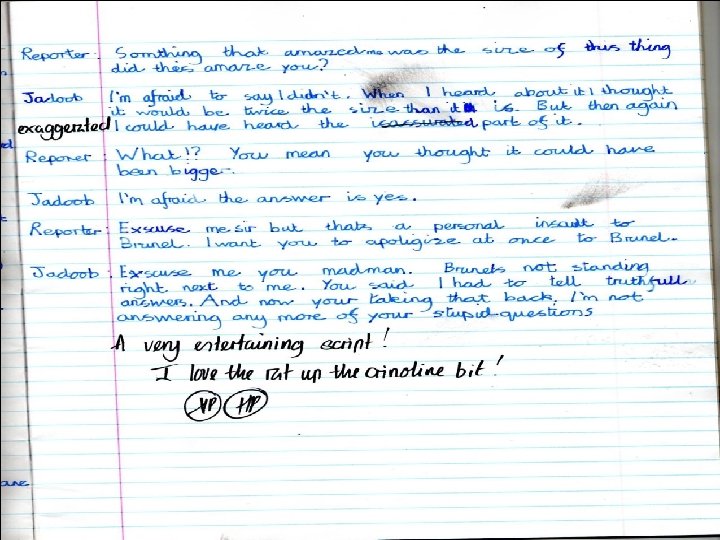 Reporter : Somthing that amazed me was the size of this thing
did this amaze you?
Jadoob I'm afraid to say I didn't. When I heard about it I thought
it would be twice the size than it is. But then again
exaggerated I could have heard the isassurated part of it.
Reporter : What!? You mean you thought it could have
been bigger.
Jadoob I'm afraid the answer is yes.
Reporter : Exscuse me sir but thats a personal insault to
Brunel. I want you to apoligize at once to Brunel.
Jadoob : Exscuse me you madman. Brunels not standing
right next to me. You said I had to tell truthfull
answers. And now your taking that back. I'm not
answering any more of your stupid questions
A very entertaining script!
I love the rat up the crinoline bit!
VP HP